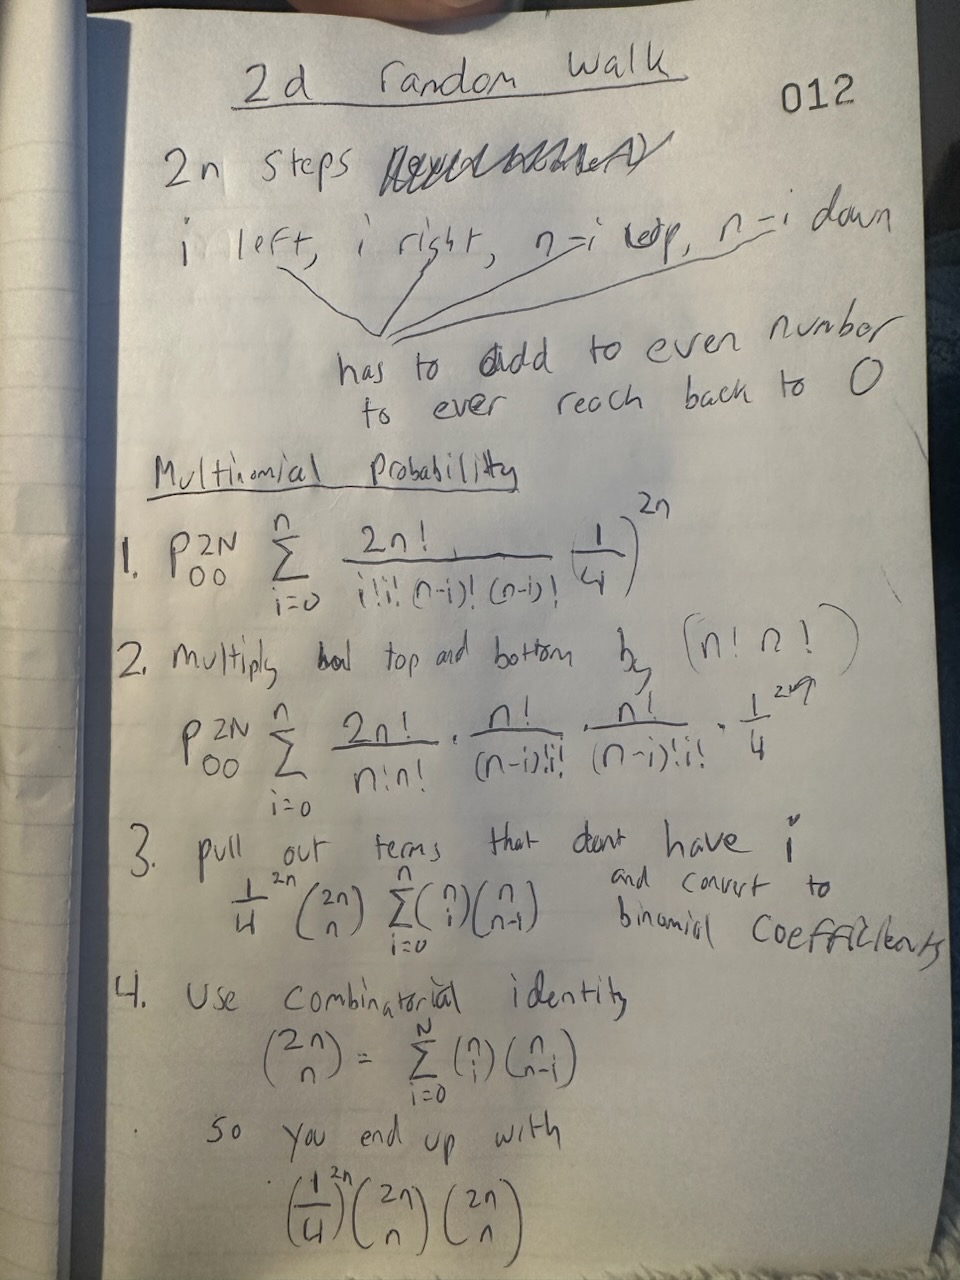 2d random walk
012
2n steps
i left, i right, n-i up, n-i down
has to add to even number
to ever reach back to 0
Multinomial Probability
1. P_{00}^{2N} \sum_{i=0}^{n} \frac{2n!}{i!i!(n-i)!(n-i)!} (\frac{1}{4})^{2n}
2. Multiply top and bottom by (n! n!)
P_{00}^{2N} \sum_{i=0}^{n} \frac{2n!}{n!n!} \cdot \frac{n!}{(n-i)!i!} \cdot \frac{n!}{(n-i)!i!} \cdot \frac{1}{4}^{2n}
3. pull out terms that dont have i
and convert to
binomial coefficients
\frac{1}{4}^{2n} \binom{2n}{n} \sum_{i=0}^{n} \binom{n}{i} \binom{n}{n-i}
4. Use combinatorial identity
\binom{2n}{n} = \sum_{i=0}^{N} \binom{n}{i} \binom{n}{n-i}
so you end up with
(\frac{1}{4})^{2n} \binom{2n}{n} \binom{2n}{n}